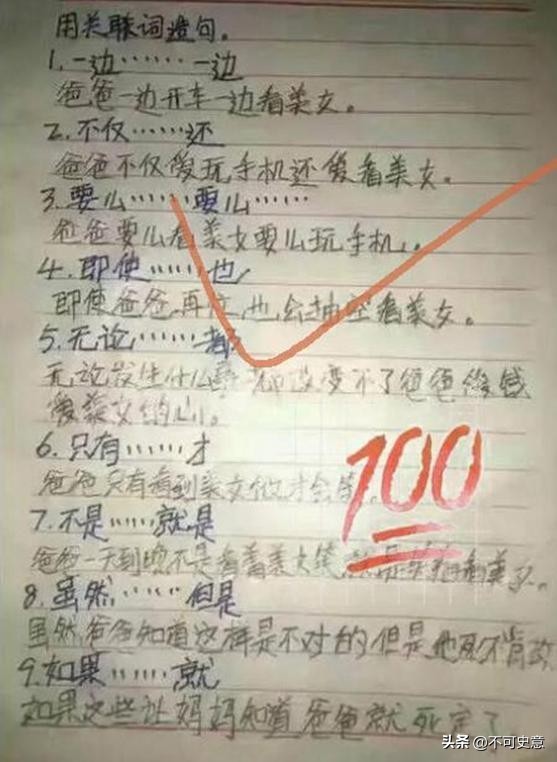 用关联词造句。
1.一边……一边
爸爸一边开车一边看美女。
2.不仅……还
爸爸不仅爱玩手机还爱看美女。
3.要么……要么……
爸爸要么看美女要么玩手机。
4.即使……也
即使爸爸再忙也会抽空看美女。
5.无论……都
无论发生什么事都改变不了爸爸爱钱
爱美女的心。
6.只有……才
爸爸只有看到美女他才会笑
100
7.不是……就是
爸爸一天到晚不是看着美女笑就是看美女。
8.虽然……但是
虽然爸爸知道这样是不对的但是他死不肯改
9.如果……就
如果这些让妈妈知道爸爸就死定了
头条 @不可史意